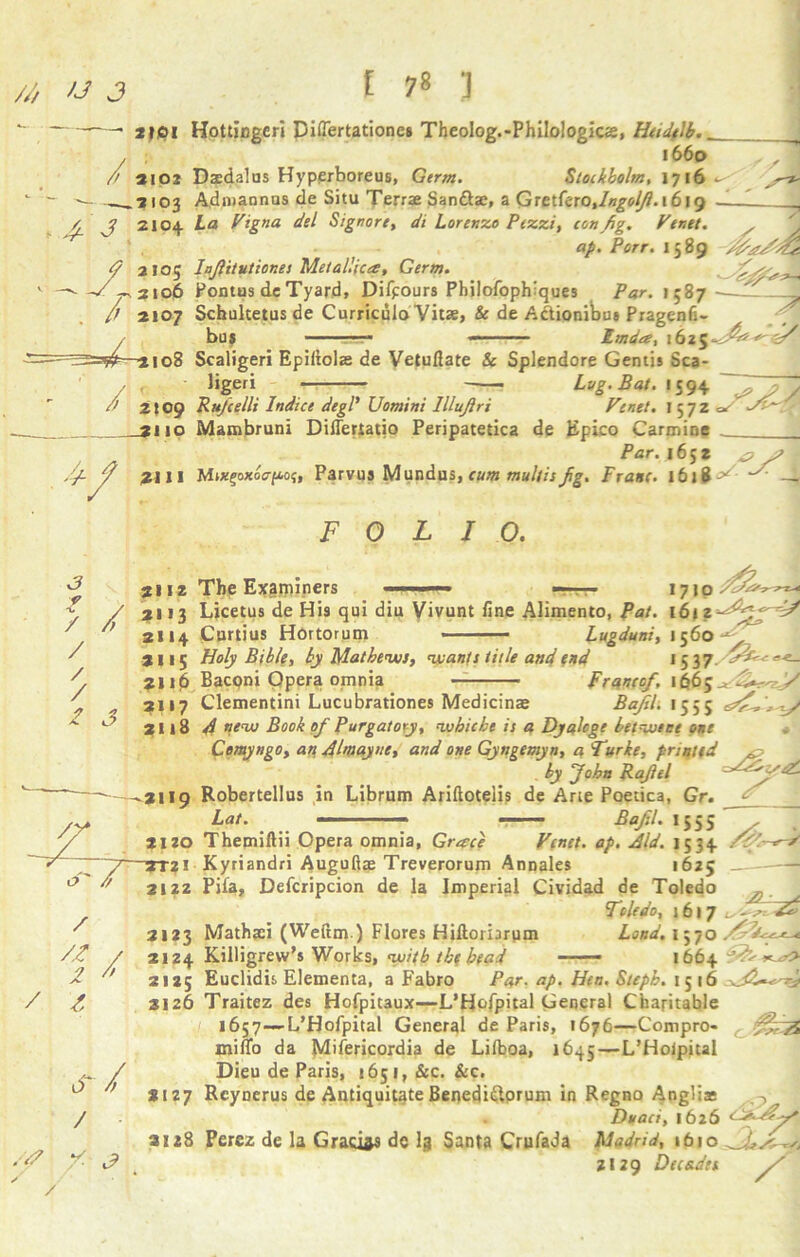 [ 78 ]
2101 Hottingeri Differtationes Theolog.-Philologicæ, Heidelb.
1660
2102 Dædalus Hyperboreus, Germ. Stockholm, 1716
2103 Admannus de Situ Terræ Sanctæ, a Gretfero, Ingolft. 1619
2104 La Vigna del Signore, di Lorenzo Pezzi, con fig. Venet.
ap. Porr. 1589
2105 Inftitutiones Metallicæ, Germ.
2106 Pontus de Tyard, Difcours Philofophiques Par. 1587
2107 Schultetus de Curriculo Vitæ, & de Actionibus Pragenfi-
bus —— —— Emdæ, 1625
2108 Scaligeri Epiftolæ de Vetuftate & Splendore Gentis Sca-
ligeri —— —— Lug. Bat. 1594
2109 Rufcelli Indice degl' Uomini Illuftri Venet. 1572
2110 Mambruni Differtatio Peripatetica de Epico Carmine
Par. 1652
2111 Μικροκόσμος, Parvus Mundus, cum multis fig. Franc. 1618
F O L I O.
2112 The Examiners —— —— 1710
2113 Licetus de His qui diu Vivunt fine Alimento, Pat. 1612
2114 Curtius Hortorum —— Lugduni, 1560
2115 Holy Bible, by Mathews, wants title and end 1537
2116 Baconi Opera omnia —— Francof. 1665
2117 Clementini Lucubrationes Medicinæ Bafil. 1555
2118 A new Book of Purgatory, whiche is a Dyaloge betwene one
Comyngo, an Almayne, and one Gyngemyn, a Turke, printed
by John Raftel
2119 Robertellus in Librum Ariftotelis de Arte Poetica, Gr.
Lat. —— —— Bafil. 1555
2120 Themiftii Opera omnia, Græcè Venet. ap. Ald. 1534
2121 Kyriandri Auguftæ Treverorum Annales 1625
2122 Pifa, Defcripcion de la Imperial Cividad de Toledo
Toledo, 1617
2123 Mathæi (Weftm.) Flores Hiftoriarum Lond. 1570
2124 Killigrew's Works, with the head —— 1664
2125 Euclidis Elementa, a Fabro Par. ap. Hen. Steph. 1516
2126 Traitez des Hofpitaux—L'Hofpital General Charitable
1657—L'Hofpital General de Paris, 1676—Compro-
miffo da Mifericordia de Lifboa, 1645—L'Hofpital
Dieu de Paris, 1651, &c. &c.
2127 Reynerus de Antiquitate Benedictorum in Regno Angliæ
Duaci, 1626
2128 Perez de la Gracias de la Santa Crufada Madrid, 1610
2129 Decades